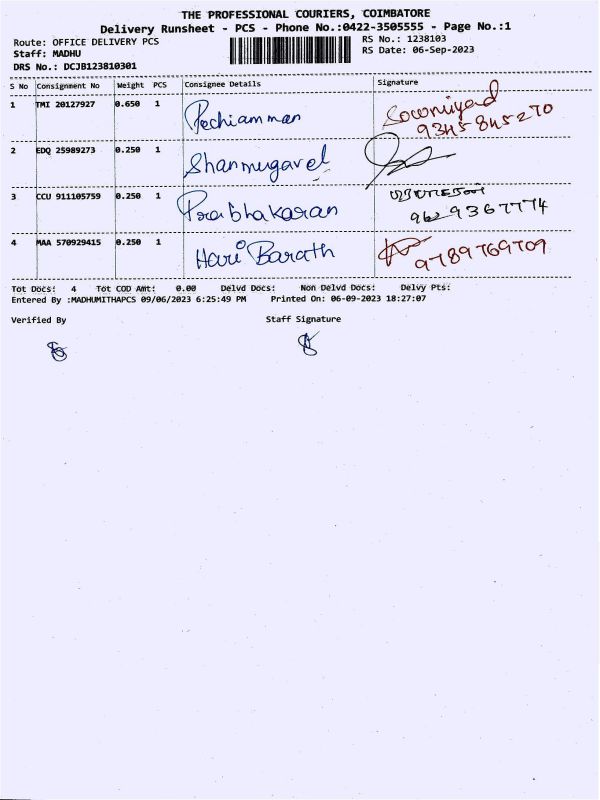 THE PROFESSIONAL COURIERS, COIMBATORE
Delivery Runsheet - PCS - Phone No.:0422-3505555 - Page No.:1
Route: OFFICE DELIVERY PCS
Staff: MADHU
DRS No.: DCJB123810301
RS No.: 1238103
RS Date: 06-Sep-2023
S No Consignment No Weight PCS Consignee Details Signature
1 TMI 20127927 0.650 1 Pechiamman
9345845270
2 EDQ 25989273 0.250 1 Shanmugavel
3 CCU 911105759 0.250 1 Prabhakaran
9629367774
4 MAA 570929415 0.250 1 Hari Barath
9789769709
Tot Docs: 4 Tot COD Amt: 0.00 Delvd Docs: Non Delvd Docs: Delvy Pts:
Entered By :MADHUMITHAPCS 09/06/2023 6:25:49 PM Printed On: 06-09-2023 18:27:07
Verified By Staff Signature